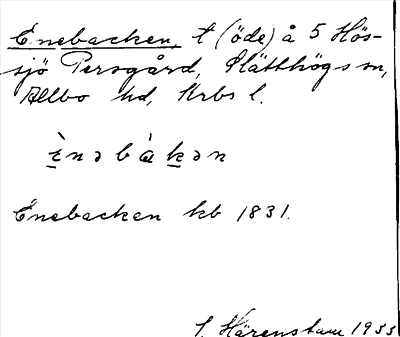 Enebacken, t (öde) å 5 Hös-
sjö Persgård, Slätthögs sn,
Allbo hd, Krbs l.
ènəbàkən
Enebacken kb 1831.
Härenstam 1933